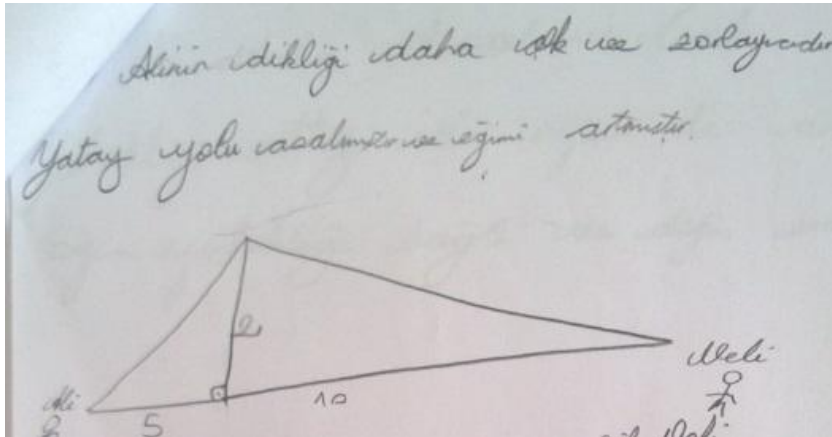 Alinin dikliği daha çok ve zorlayıcıdır
Yatay yolu azalmış ve eğimi artmıştır.
2
Veli
Ali
5
10